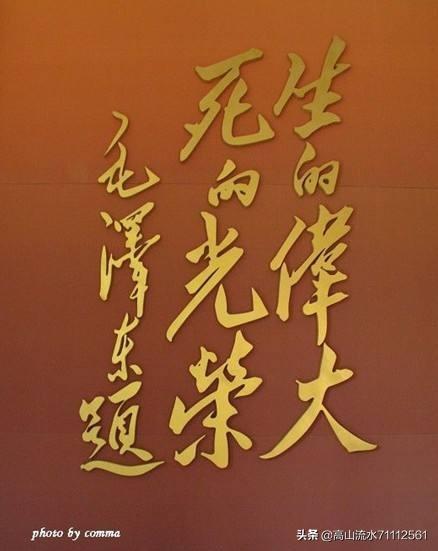 生的偉大
死的光榮
毛澤东題
photo by comma
头条 @高山流水71112561